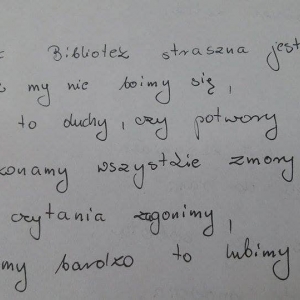 Bibliotek straszna jest
my nie boimy się,
to duchy, czy potwory
konamy wszystkie zmory
czytania zgonimy,
my bardzo to lubimy